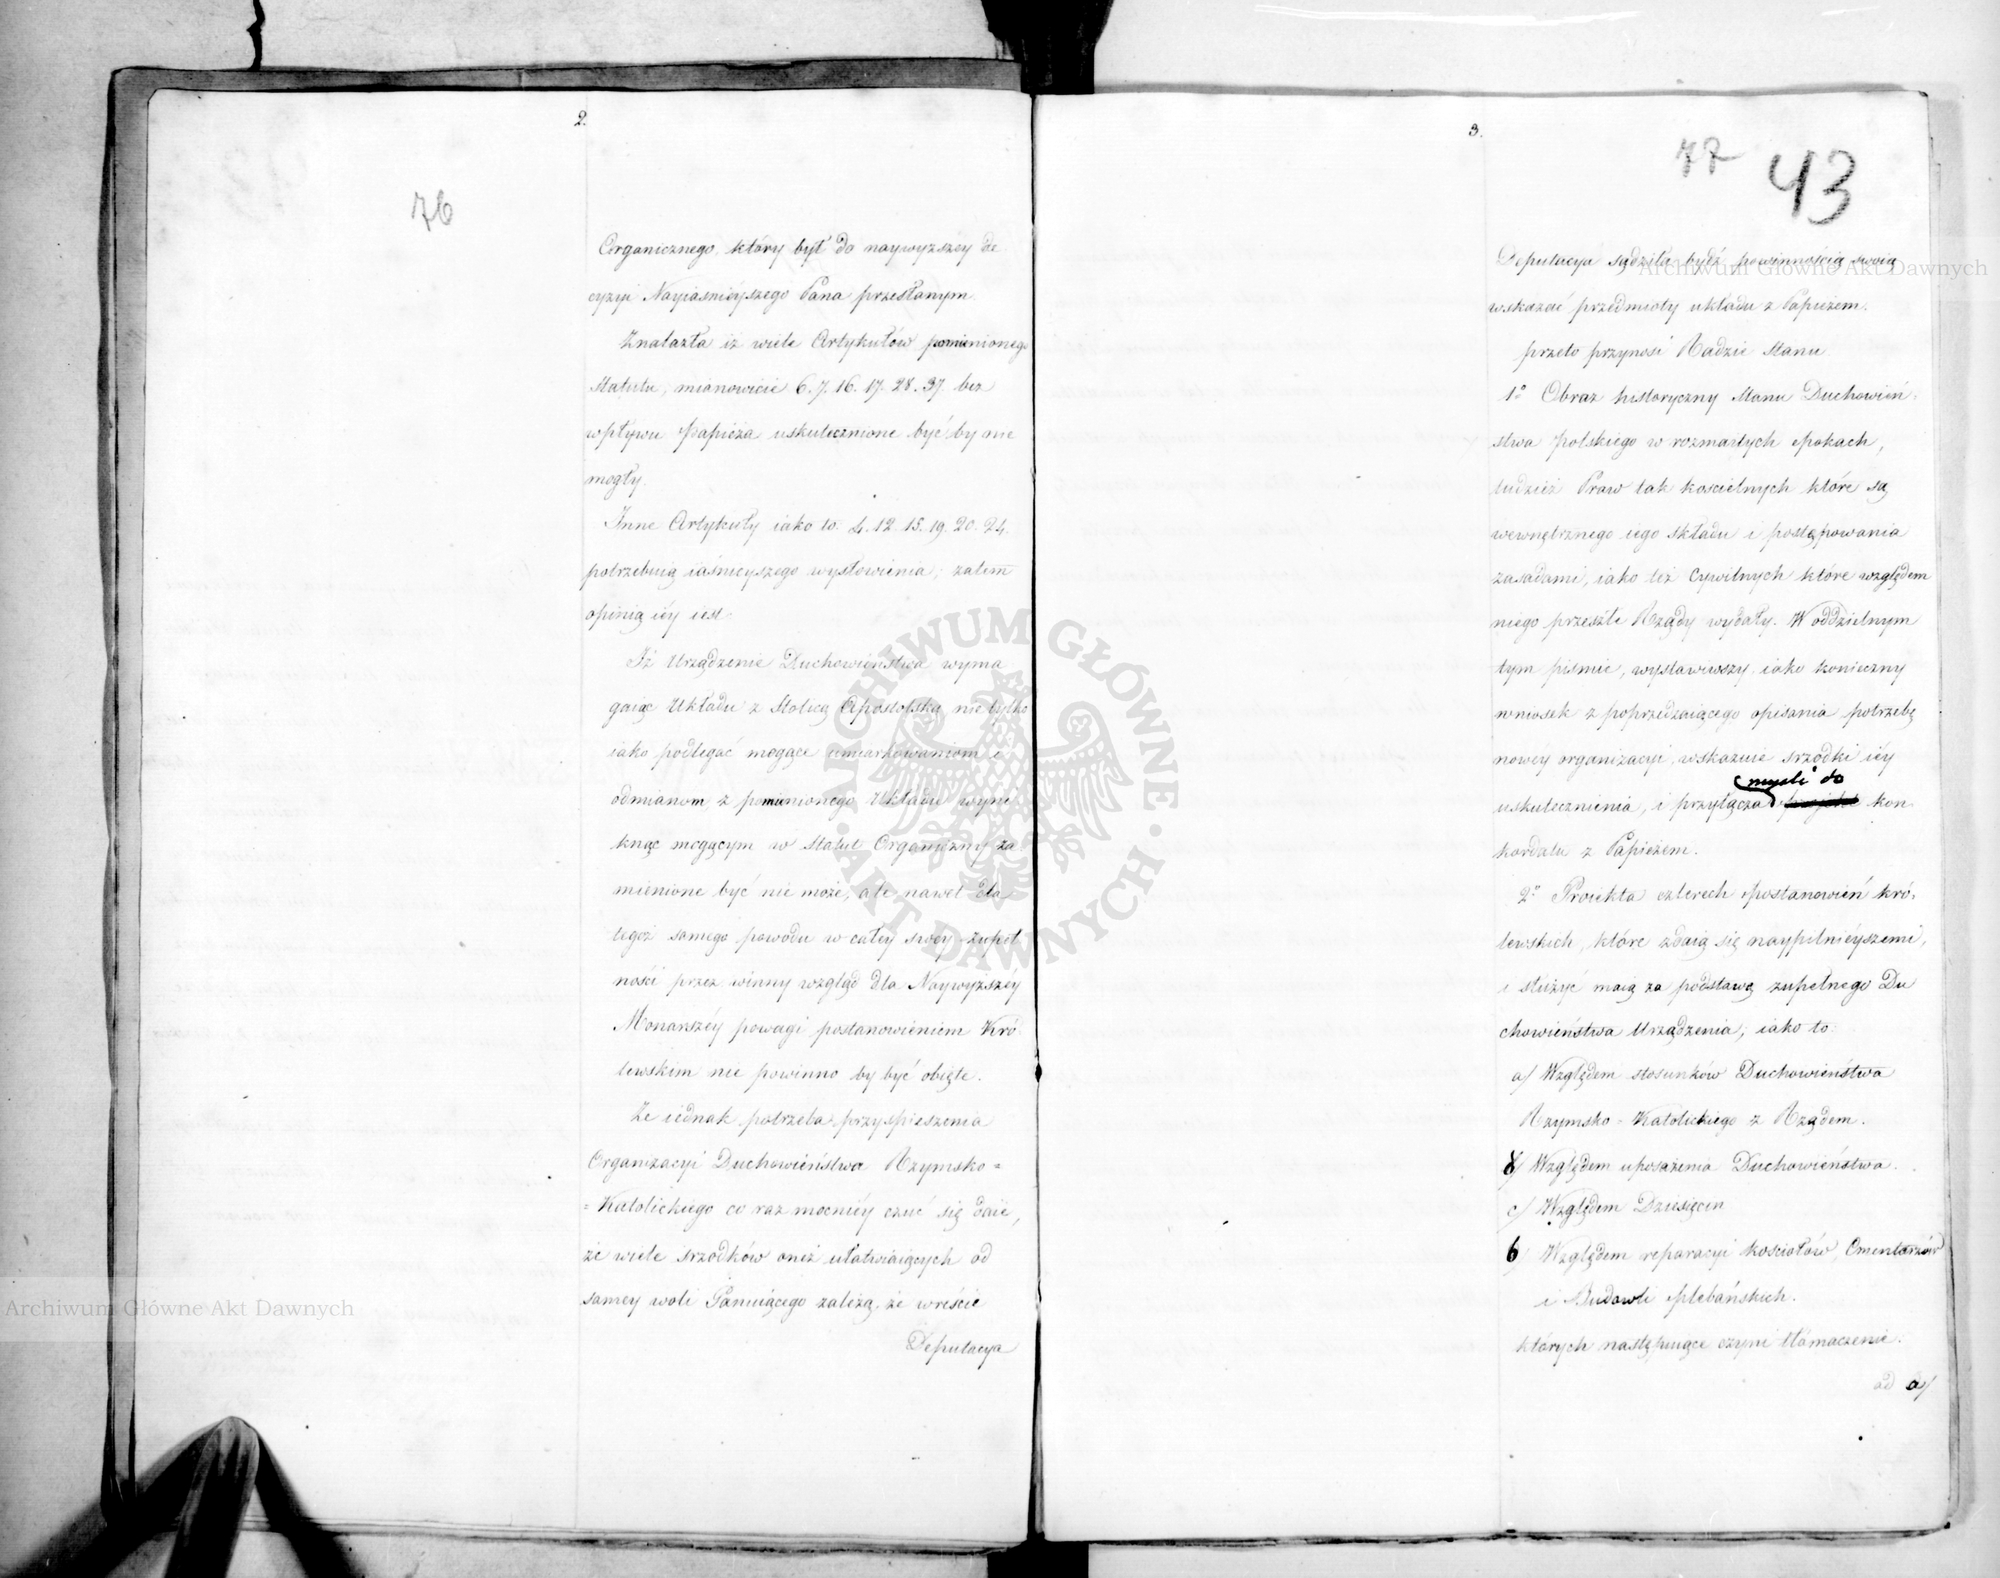 2.
76
Organicznego, który był do naywyższey de
cyzyi Nayiaśnieyszego Pana przesłanym.
Znalazła iż wiele Artykułów pomienionego
Statutu, mianowicie 6. 7. 16. 17. 28. 37. bez
wpływu Papieża uskutecznione być by nie
mogły.
Inne Artykuły iako to: 4. 12. 15. 19. 20. 24.
potrzebuią iaśnieyszego wysłowienia; zatem
opinią iéy iest
Iż Urządzenie Duchowieństwa wyma
gaiąc Układu z Stolicą Apostolską nie tylko
iako podlegać mogące umiarkowaniom i
odmianom z pomienionego Układu wyni
knąć mogącym w Statut Organiczny za
mienione być nie może, ale nawet dla
tegoż samego powodu w całey swey zupeł
ności przez winny wzgląd dla Naywyższéy
Monarszéy powagi postanowieniem Kró
lewskim nie powinno by być obięte.
Że iednak potrzeba przyspieszenia
Organizacyi Duchowieństwa Rzymsko=
=Katolickiego co raz mocniéy czuć się daie,
że wiele srzodków oneż ułatwiaiących od
samey woli Panuiącego zależą, że wreście
Deputacya
3.
77 43
Deputacya sądziła bydź powinnością swoią
wskazać przedmioty układu z Papieżem.
przeto przynosi Radzie Stanu
1° Obraz historyczny Stanu Duchowień
stwa polskiego w rozmaitych epokach,
tudzież Praw tak kościelnych które są
wewnętrznego iego składu i postępowania
zasadami, iako też Cywilnych które względem
niego przeszłe Rządy wydały. W oddzielnym
tym piśmie, wystawiwszy iako konieczny
wniosek z poprzedzaiącego opisania potrzebę
nowéy organizacyi, wskazuie srzodki iéy
myśli do
uskutecznienia, i przyłącza projekt kon
kordatu z Papieżem.
2° Proiekta czterech postanowień kró
lewskich, które zdaią się naypilnieyszemi,
i służyć maią za podstawę zupełnego Du
chowieństwa Urządzenia, iako to:
a/ Względem stosunków Duchowieństwa
Rzymsko=Katolickiego z Rządem.
Względem uposażenia Duchowieństwa.
c/ Względem Dziesięcin
Względem reparacyi kościołów, Cmentarzów
i Budowli plebańskich.
których następuiące czyni tłómaczenie.
ad a/
Archiwum Główne Akt Dawnych
Archiwum Główne Akt Dawnych
ARCHIWUM GŁÓWNE
AKT DAWNYCH